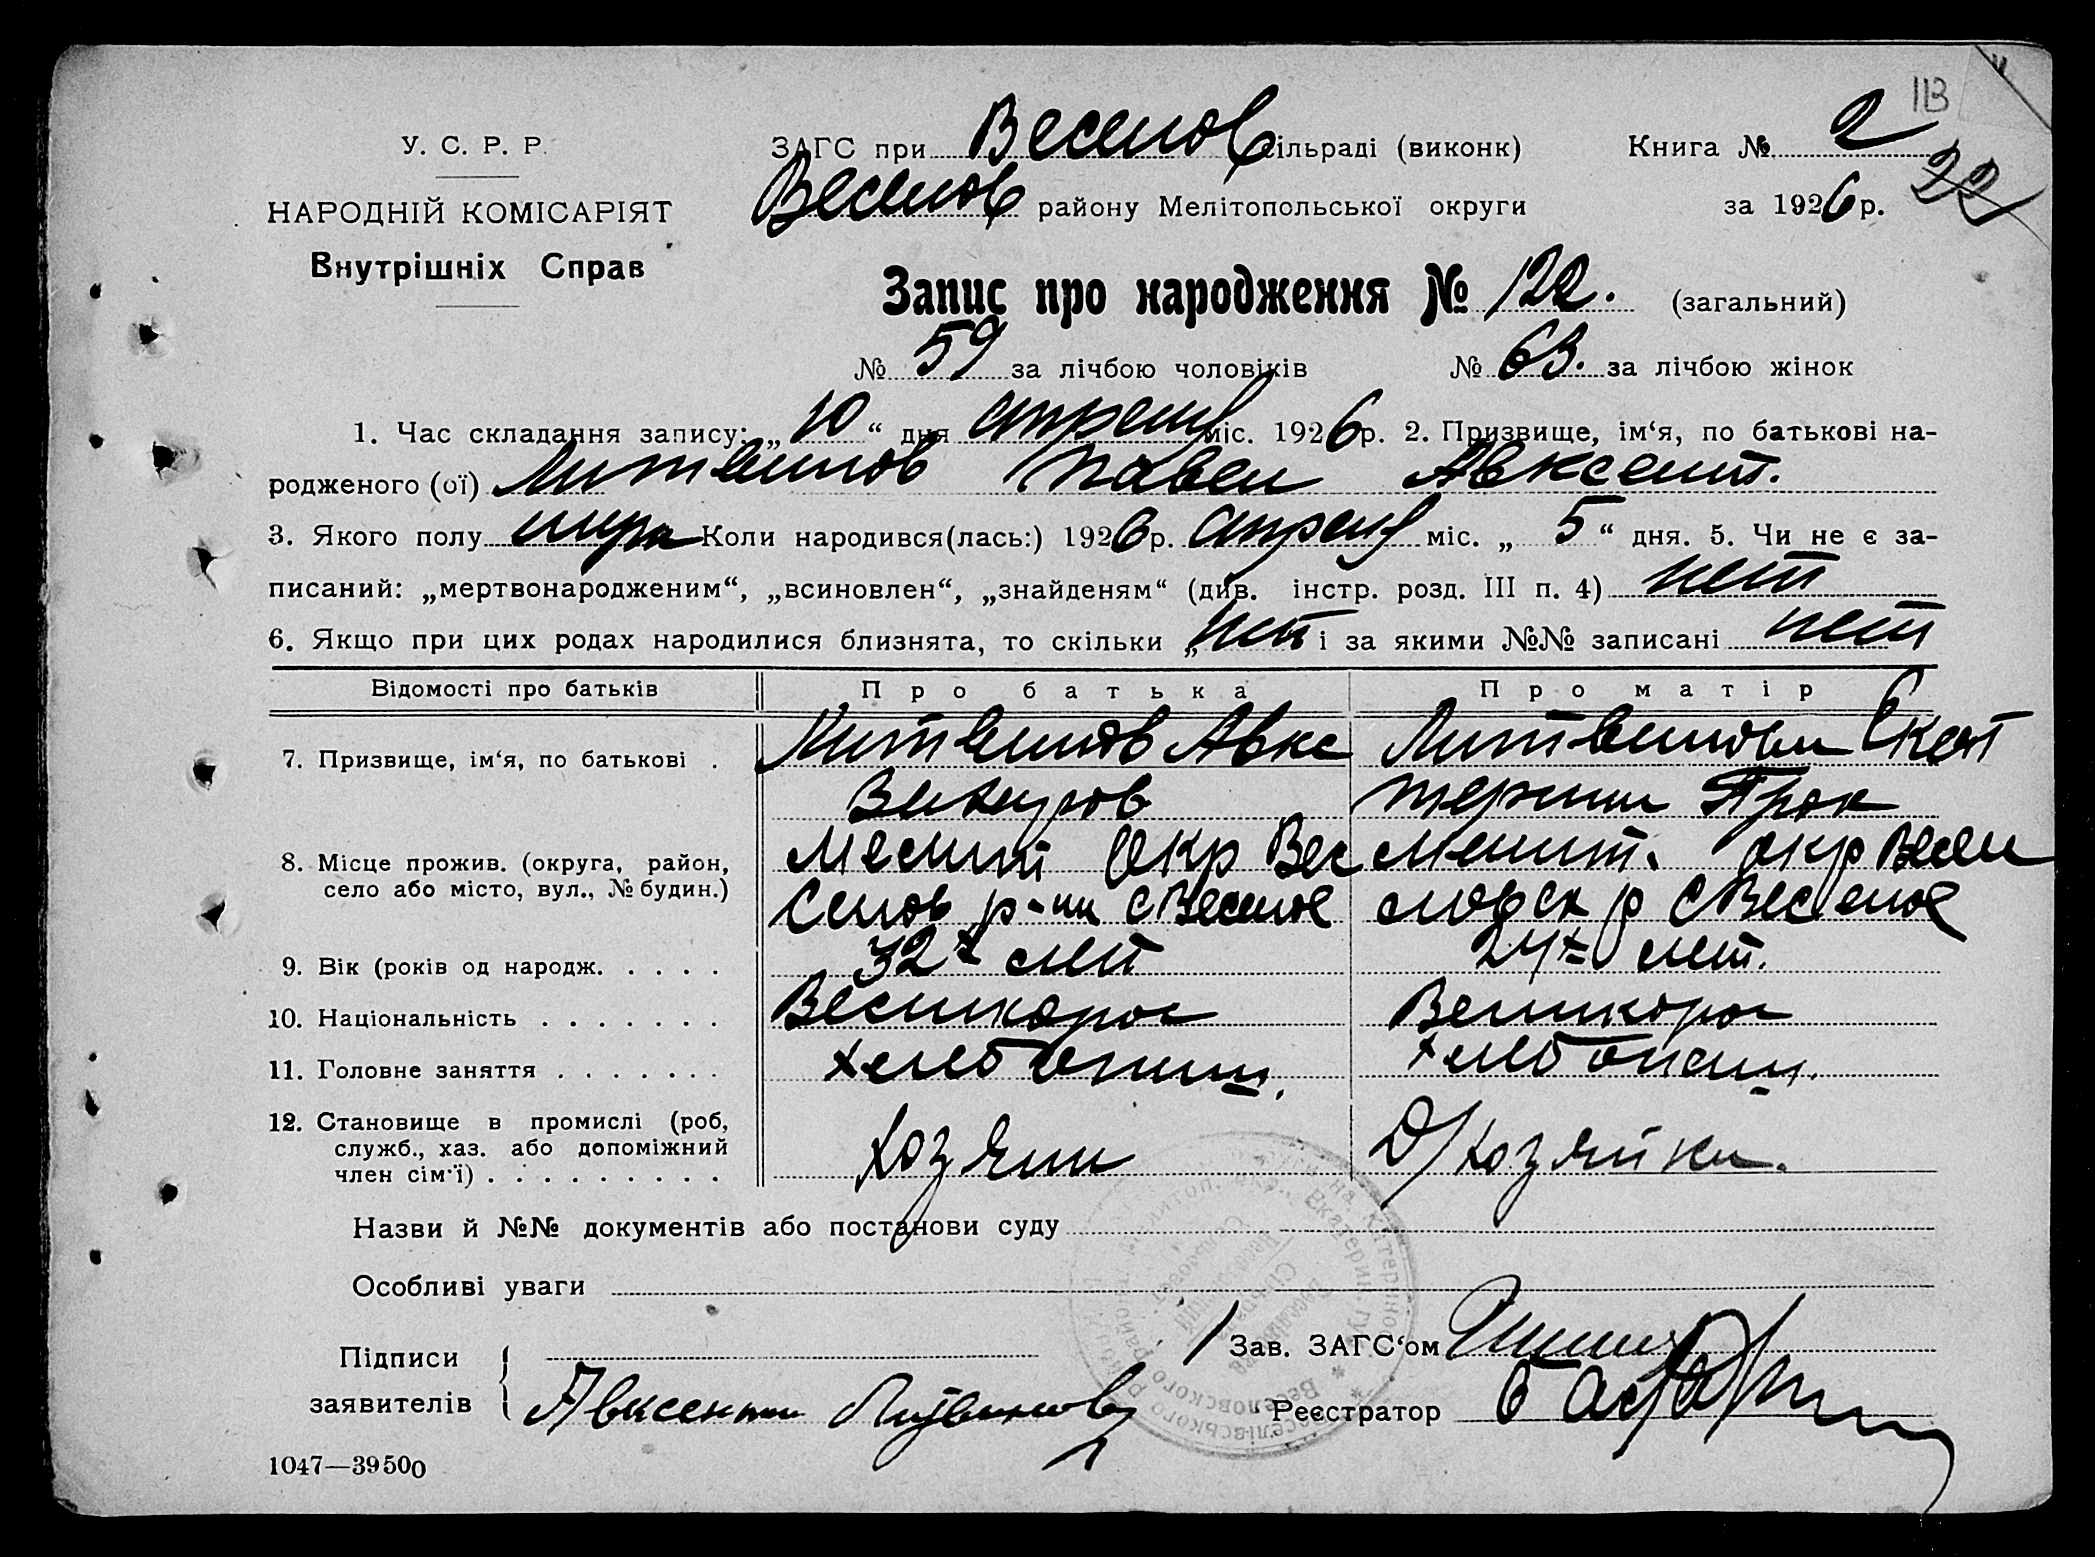 113
У. С. Р. Р.
НАРОДНІЙ КОМІСАРІЯТ
Внутрішніх Справ
ЗАГС при Веселов сільраді (виконк)
Веселов району Мелітопольської округи
Книга № 2
22
за 1926 р.
Запис про народження № 122. (загальний)
№ 59 за лічбою чоловіків № 63. за лічбою жінок
1. Час складання запису: „10“ дня апреля міс. 1926 р. 2. Призвище, ім‘я, по батькові на-
родженого (ої) Литвинов Павел Авксент.
3. Якого полу муж Коли народився(лась:) 1926 р. апреля міс. „5“ дня. 5. Чи не є за-
писаний: „мертвонародженим“, „всиновлен“, „знайденям“ (див. інстр. розд. III п. 4) нет
6. Якщо при цих родах народилися близнята, то скільки „нет і за якими №№ записані нет
Відомості про батьків Про батька Про матір
7. Призвище, ім‘я, по батькові . Литвинов Авкс Литвинова Екат
терина Прок
8. Місце прожив. (округа, район, Мелит Окр Вес Мелит. окр Весел
село або місто, вул., № будин.) елов р-на с Веселое новск р с Веселое
9. Вік (років од народж. . . . . 32х лет 24х лет.
10. Національність . . . . . . . Великорос Великорос
11. Головне заняття . . . . . . . хлебопаш. хлебопаш.
12. Становище в промислі (роб,
служб., хаз. або допоміжний
член сім‘ї) . . . . . . . . . Хозяин Д/хозяйка.
Назви й №№ документів або постанови суду
Особливі уваги
Підписи
заявителів Авксентий Литвинов
Зав. ЗАГС‘ом
Реєстратор
1047—39500